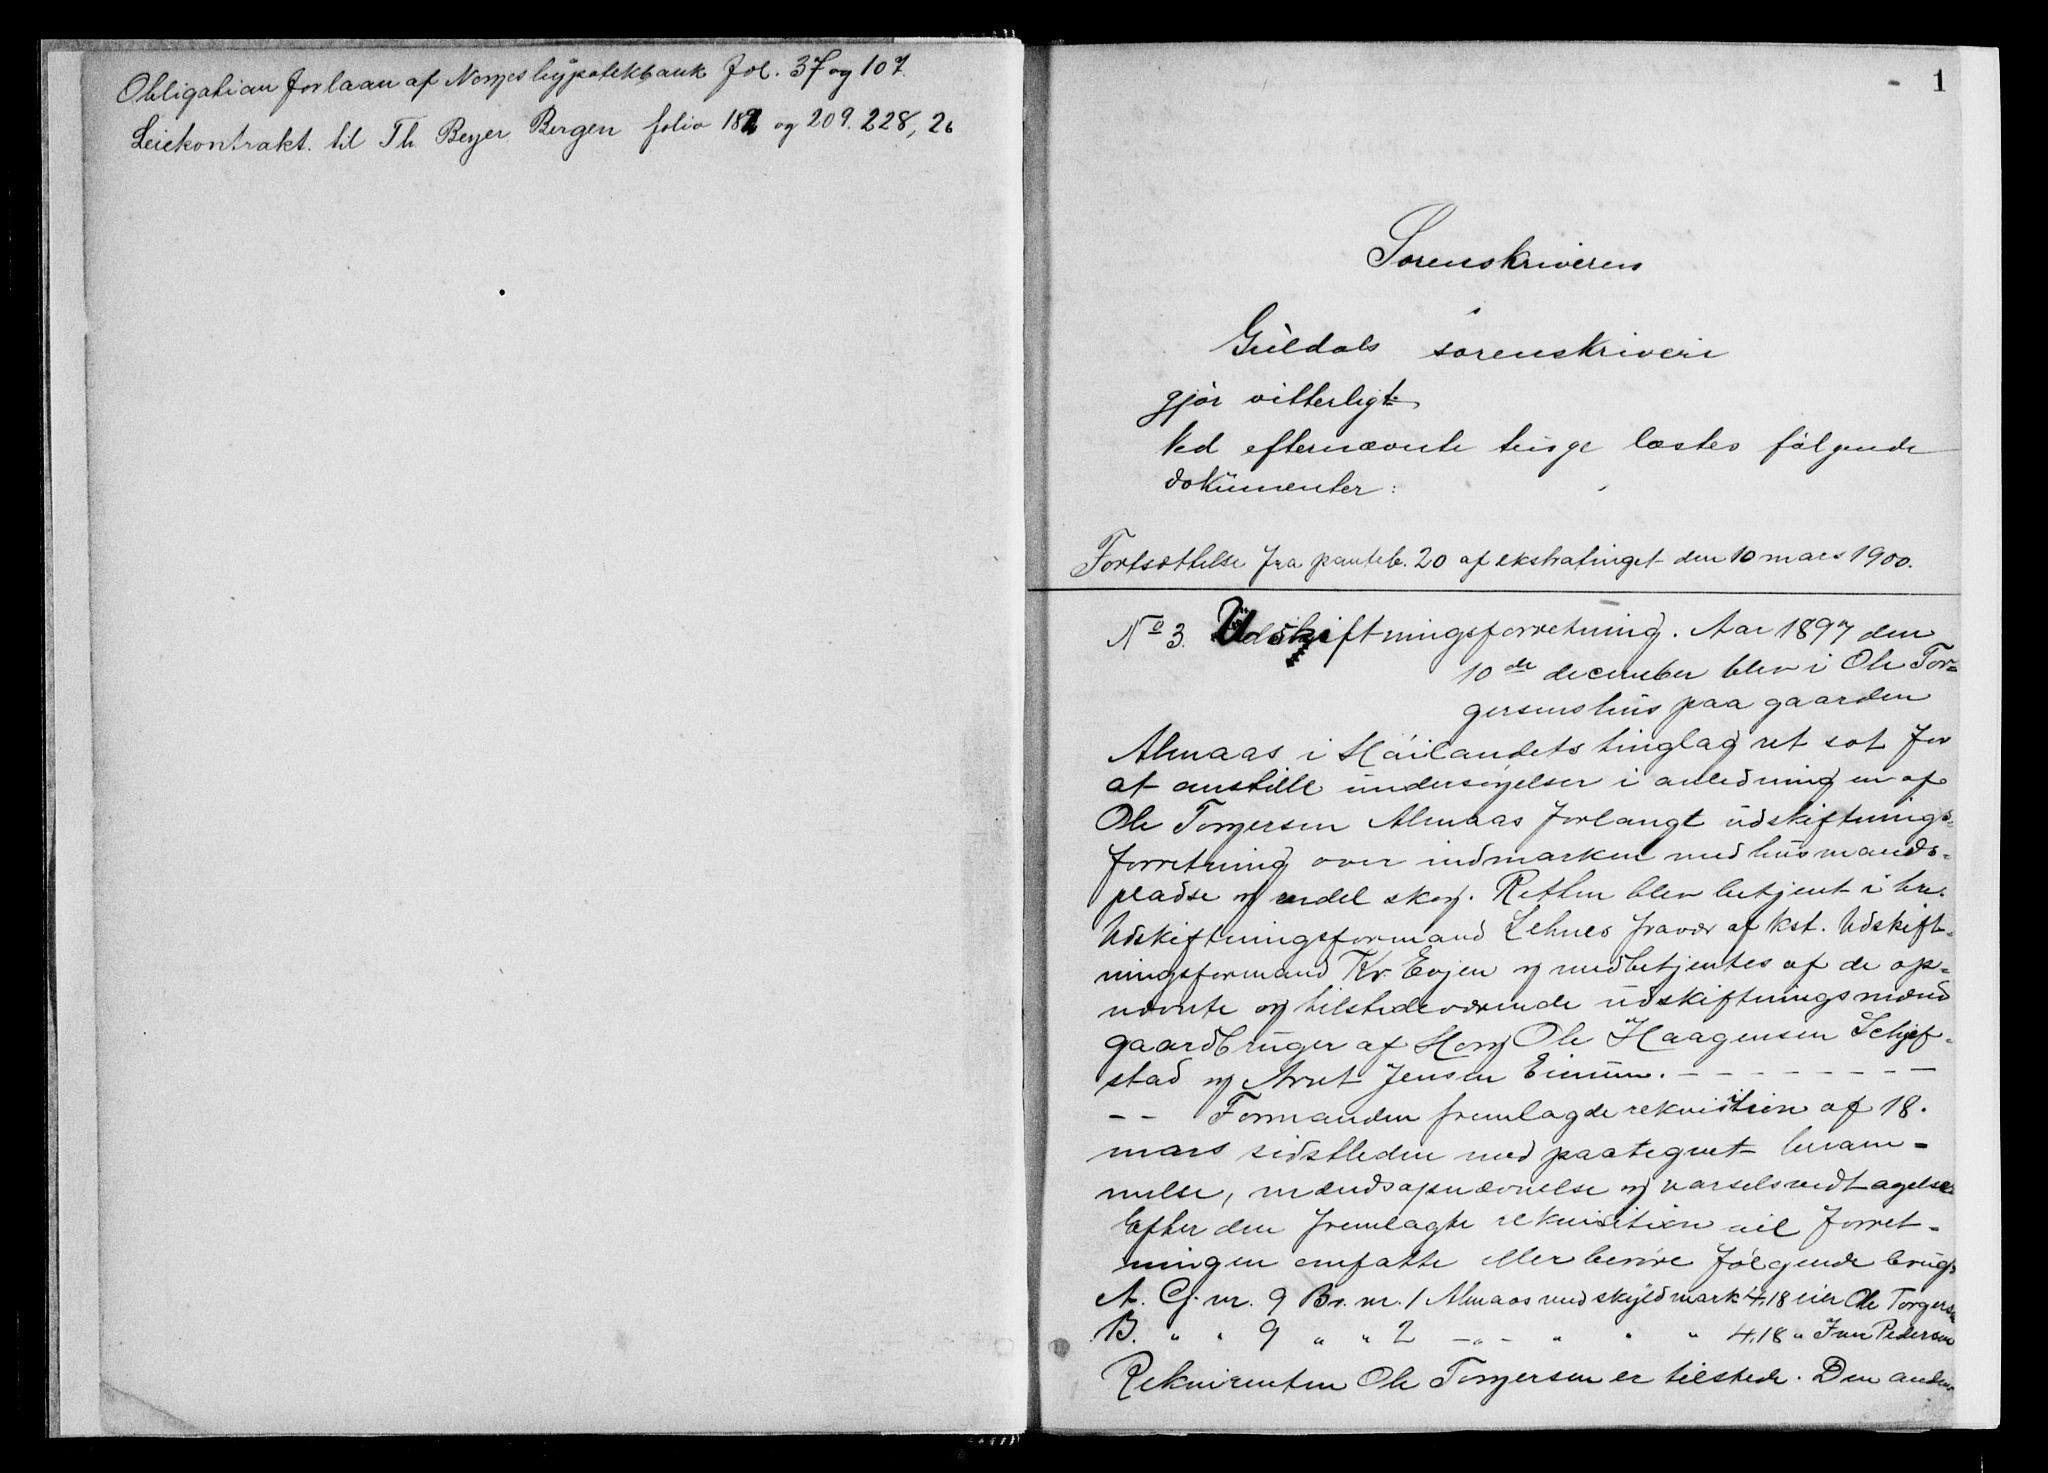 Obligation for laan af Norges hypotekbank fol. 37 og 107.
Leiekontrakt. til Th. Beyer Bergen folio 182 og 209. 228, 26
1
Sorenskriveren
i
Guldals sorenskriveri
gjör vitterligt
Ved efternævnte tinge læstes følgende
dokumenter:
Fortsættelse fra panteb. 20 af ekstratinget den 10 mars 1900.
No 3. Udskiftningsforretning. Aar 1897 den
10de december blev i Ole Tor=
gersens hus paa gaarden
Almaas i Höilandets tinglag ret sat for
at anstille undersögelser i anledning en af
Ole Torgersen Almaas forlangt udskiftnings=
forretning over indmarken med husmands=
pladse og endel skog. Retten blev betjent i hr.
Udskiftningsformand Lehnes fravær af kst. Udskift=
ningsformand Kr. Evjen og medbetjentes af de op=
nævnte og tilstedeværende udskiftningsmænd
gaardbruger af Horg Ole Haagensen Schjef=
stad og Arnt Jensen Einum. - - - - - - - -
- - Formanden fremlagde rekvisition af 18.
mars sidstleden med paategnet beram=
melse, mændsopnævnelse og varselsvedtagelse.
Efter den fremlagte rekvisition vil forret=
ningen omfatte eller beröre följende brug:
A. G. nr. 9 Br. nr. 1 Almaas med skyld mark 4,18 eier Ole Torgersen
B. " " 9 " " 2 - " - " " " 4,18 " Iver Pedersen
Rekvirenten Ole Torgersen er tilstede. Den anden